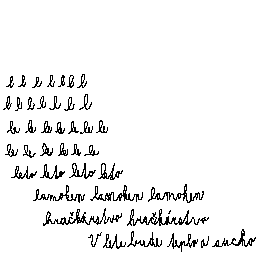 l l l l l l l
l l l l l l l
le le le le le le le
le le le le le le
leto leto leto leto
lamohen lamohen lamohen
hračkárstvo hračkárstvo
V lete bude teplo a sucho